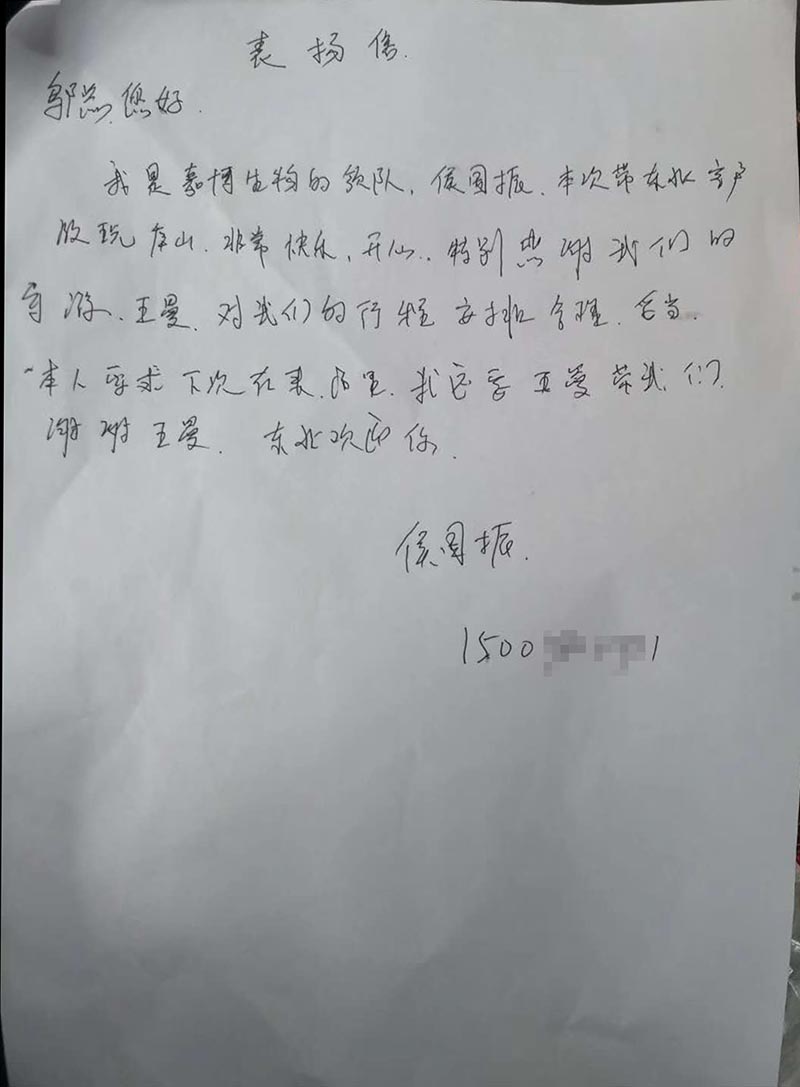 表扬信.
邬总,您好.
我是嘉博生物的领队,侯国振.本次带东北客户
游玩 山.非常快乐,开心.特别感谢我们的
导游.王曼.对我们的行程安排合理.妥当.
本人要求下次在来. 我还要王曼带我们.
谢谢王曼. 东北欢迎你.
侯国振.
1500 1